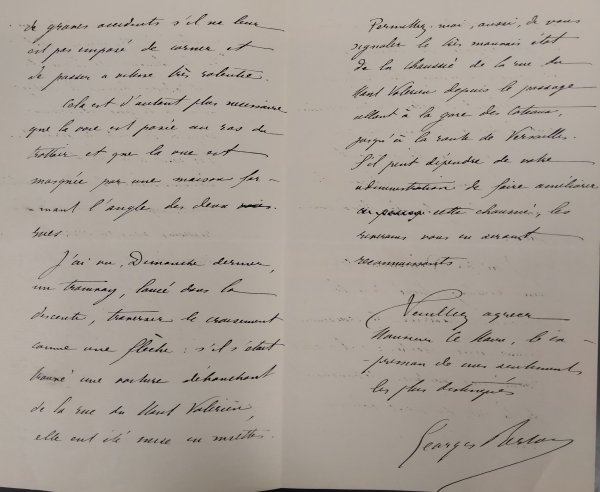 de graves accidents s'il ne leur
est pas imposé de corner et
de passer a vitesse très ralentie.
Cela est d'autant plus nécessaire
que la voie est posée au ras du
trottoir et que la vue est
masquée par une maison for-
-mant l'angle des deux
rues.
J'ai vu, Dimanche dernier,
un tramway, lancé dans la
descente, traverser le croisement
comme une flèche : s'il s'était
trouvé une voiture débouchant
de la rue du Mont Valérien,
elle eut été mise en miettes.
Permettez-moi, aussi, de vous
signaler le très mauvais état
de la chaussée de la rue du
Mont Valérien depuis le passage
allant à la gare des Coteaux,
jusqu'à la route de Versailles.
S'il peut dépendre de votre
administration de faire améliorer
cette chaussée, les
riverains vous en seront
reconnaissants.
Veuillez agréer
Monsieur le Maire, l'ex-
-pression de mes sentiments
les plus distingués
Georges